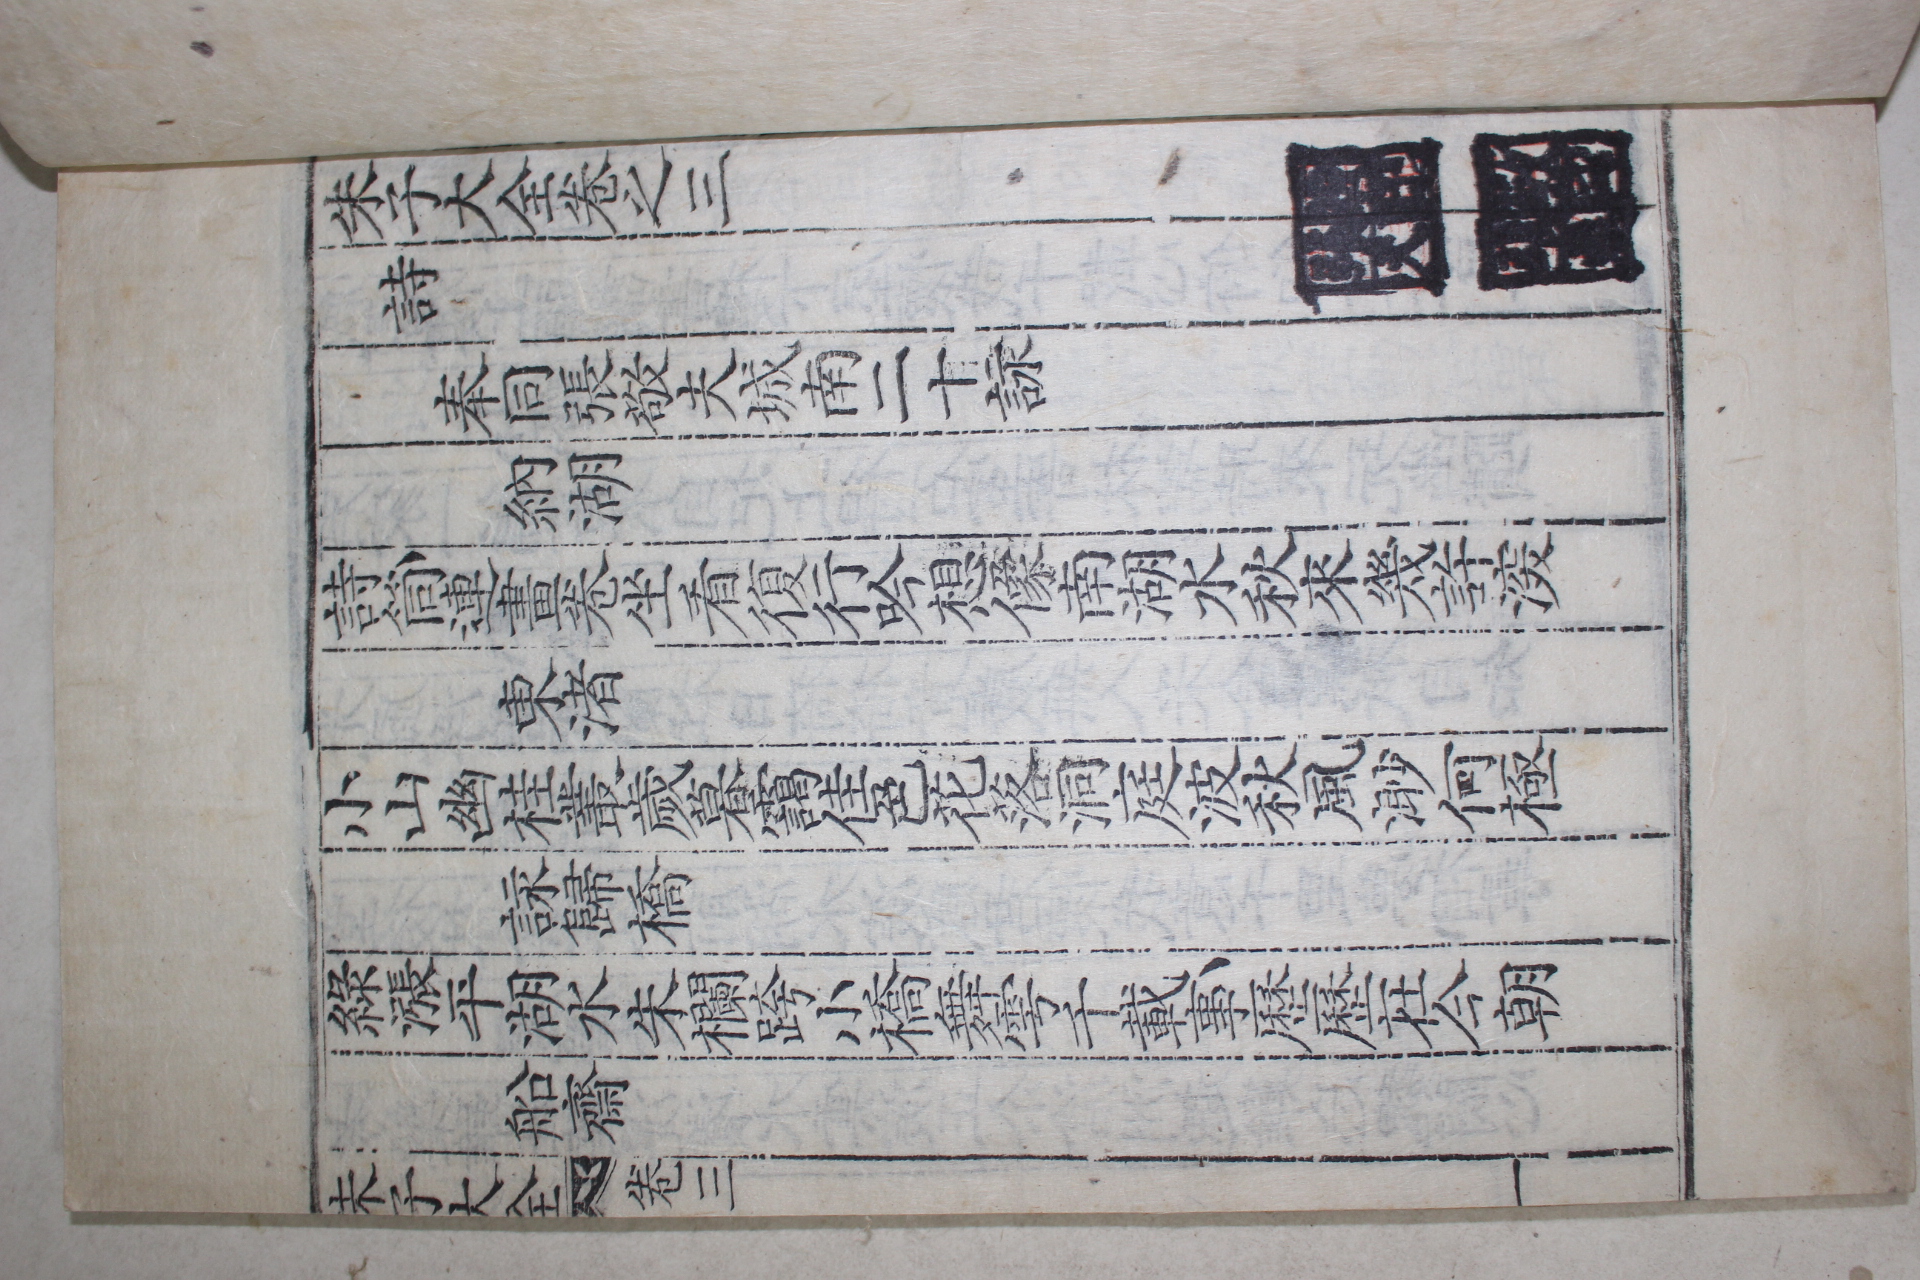 朱子大全卷之三
詩
奉同張敬夫城南二十詠
納湖
詩筒連畫卷坐看復行吟想像南湖水秋來幾許深
東渚
小山幽桂叢歲暮靄佳色花落洞庭波秋風渺何極
詠歸橋
綠漲平湖水朱欄跨小橋舞雩千載事歷歷在今朝
船齋
朱子大全 卷三 一